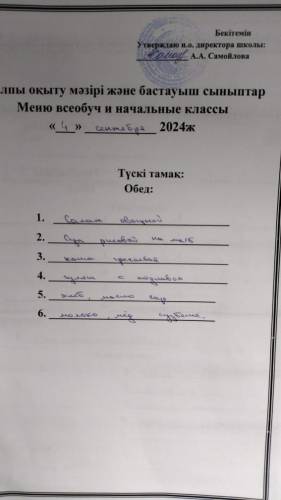 Бекітемін
Утверждаю и.о. директора школы:
А.А. Самойлова
лпы оқыту мәзірі және бастауыш сыныптар
Меню всеобуч и начальные классы
« 4 » сентября 2024ж
Түскі тамақ:
Обед:
1. Салат овощной
2. Суп рисовый на м/б
3. каша гречневая
4. гуляш с подливой
5. хлеб, масло сыр
6. молоко, мёд